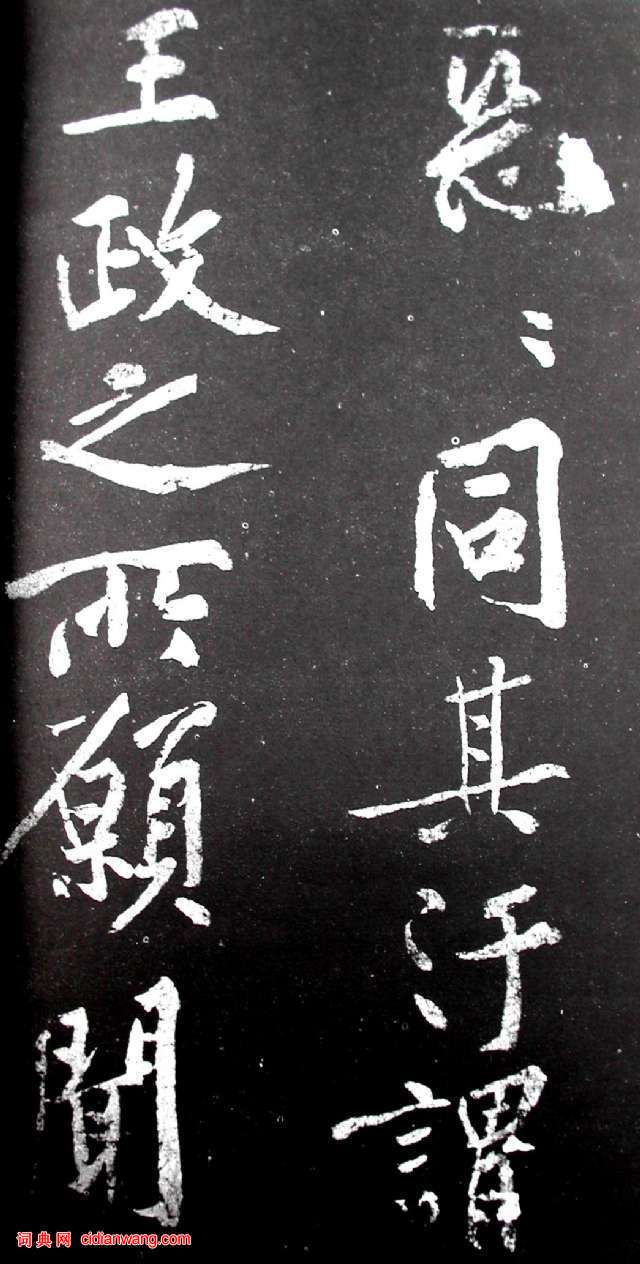 惡〻同其汙謂
王政之所願聞
词典网 cidianwang.com